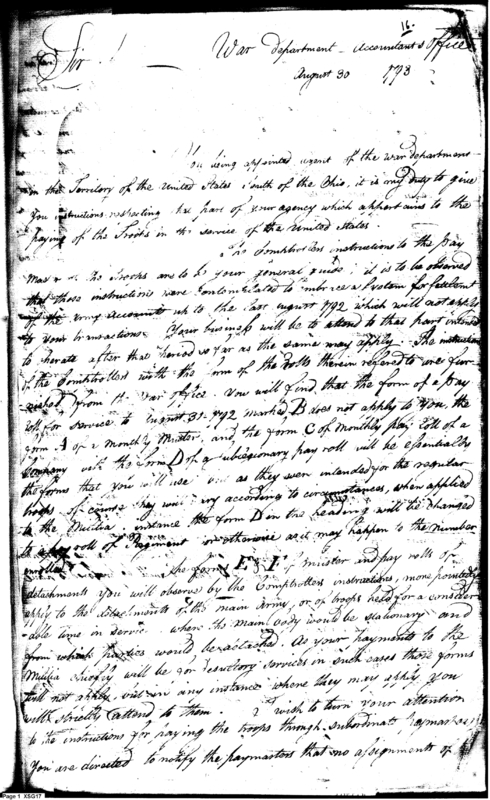 16.
War department - Accountants Office
Sir! August 30 1793
You being appointed agent of the war department
in the Territory of the United States South of the Ohio, it is my duty to give
you instructions respecting that part of your agency which appertains to the
paying of the Troops in the service of the United States.
The Comptrollers instructions to the Pay
Master of the Troops are to be your general guide; it is to be observed
that those instructions were contemplated to embrace a System for settlement
of the army accounts up to the last august 1792 which will not apply
to your transactions. Your business will be to attend to that part intended
to operate after that period so far as the same may apply. The instructions
of the Comptroller with the form of the Rolls therein refered to are fur-
nished from the War office. You will find, that the form of a Pay
roll for service to August 31 1792 marked B does not apply to you, the
form A of a Monthly Muster, and the form C of Monthly pay roll of a
Company with the form D of a subsessionary pay roll will be essentially
the forms that you will use but as they were intended for the regular
troops of course they will vary according to circumstances, when applied
to the Militia. instance the form D in the heading will be changed
to a pay roll of Regiment or otherwise as it may happen to the number
enrolled.
The forms E & F of muster and pay rolls of
detachments you will observe by the Comptrollers instructions, more pointedly
apply to the detachments of the main Army, or of troops held for a consider-
able time in service where the main body would be stationary and
from which parties would be detached. As your payments to the
Militia chiefly will be for desultory services in such cases these forms
will not apply but in any instance where they may apply you
will strictly attend to them. I wish to turn your attention
to the instructions for paying the troops through subordinate paymasters
You are directed to notify the paymasters that no assignments of
Page 1 XSG17